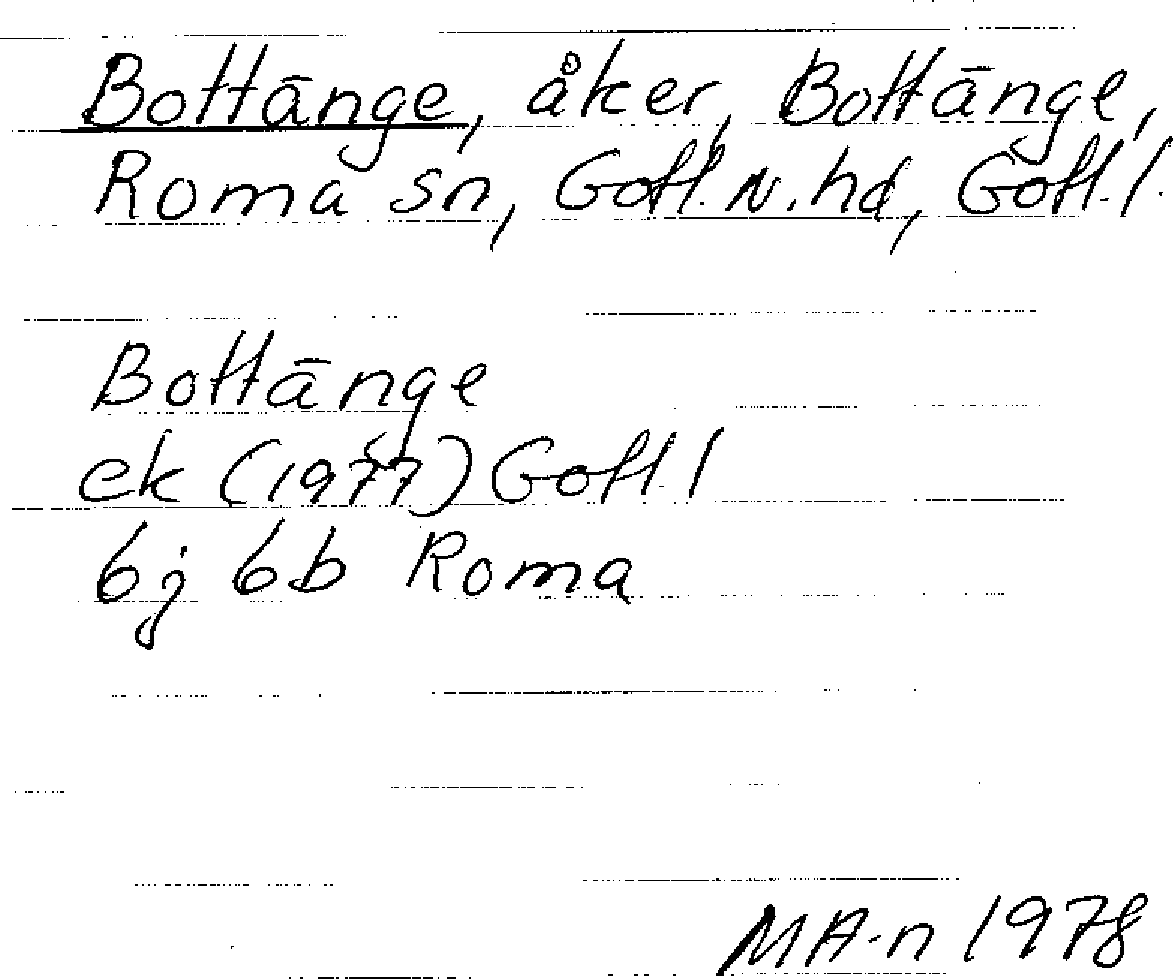 Bottänge, åker, Bottänge,
Roma sn, Gotl. N. hd, Gotl. l.
Bottänge
ek (1977) Gotl. l
6j 6b Roma
MA-n 1978